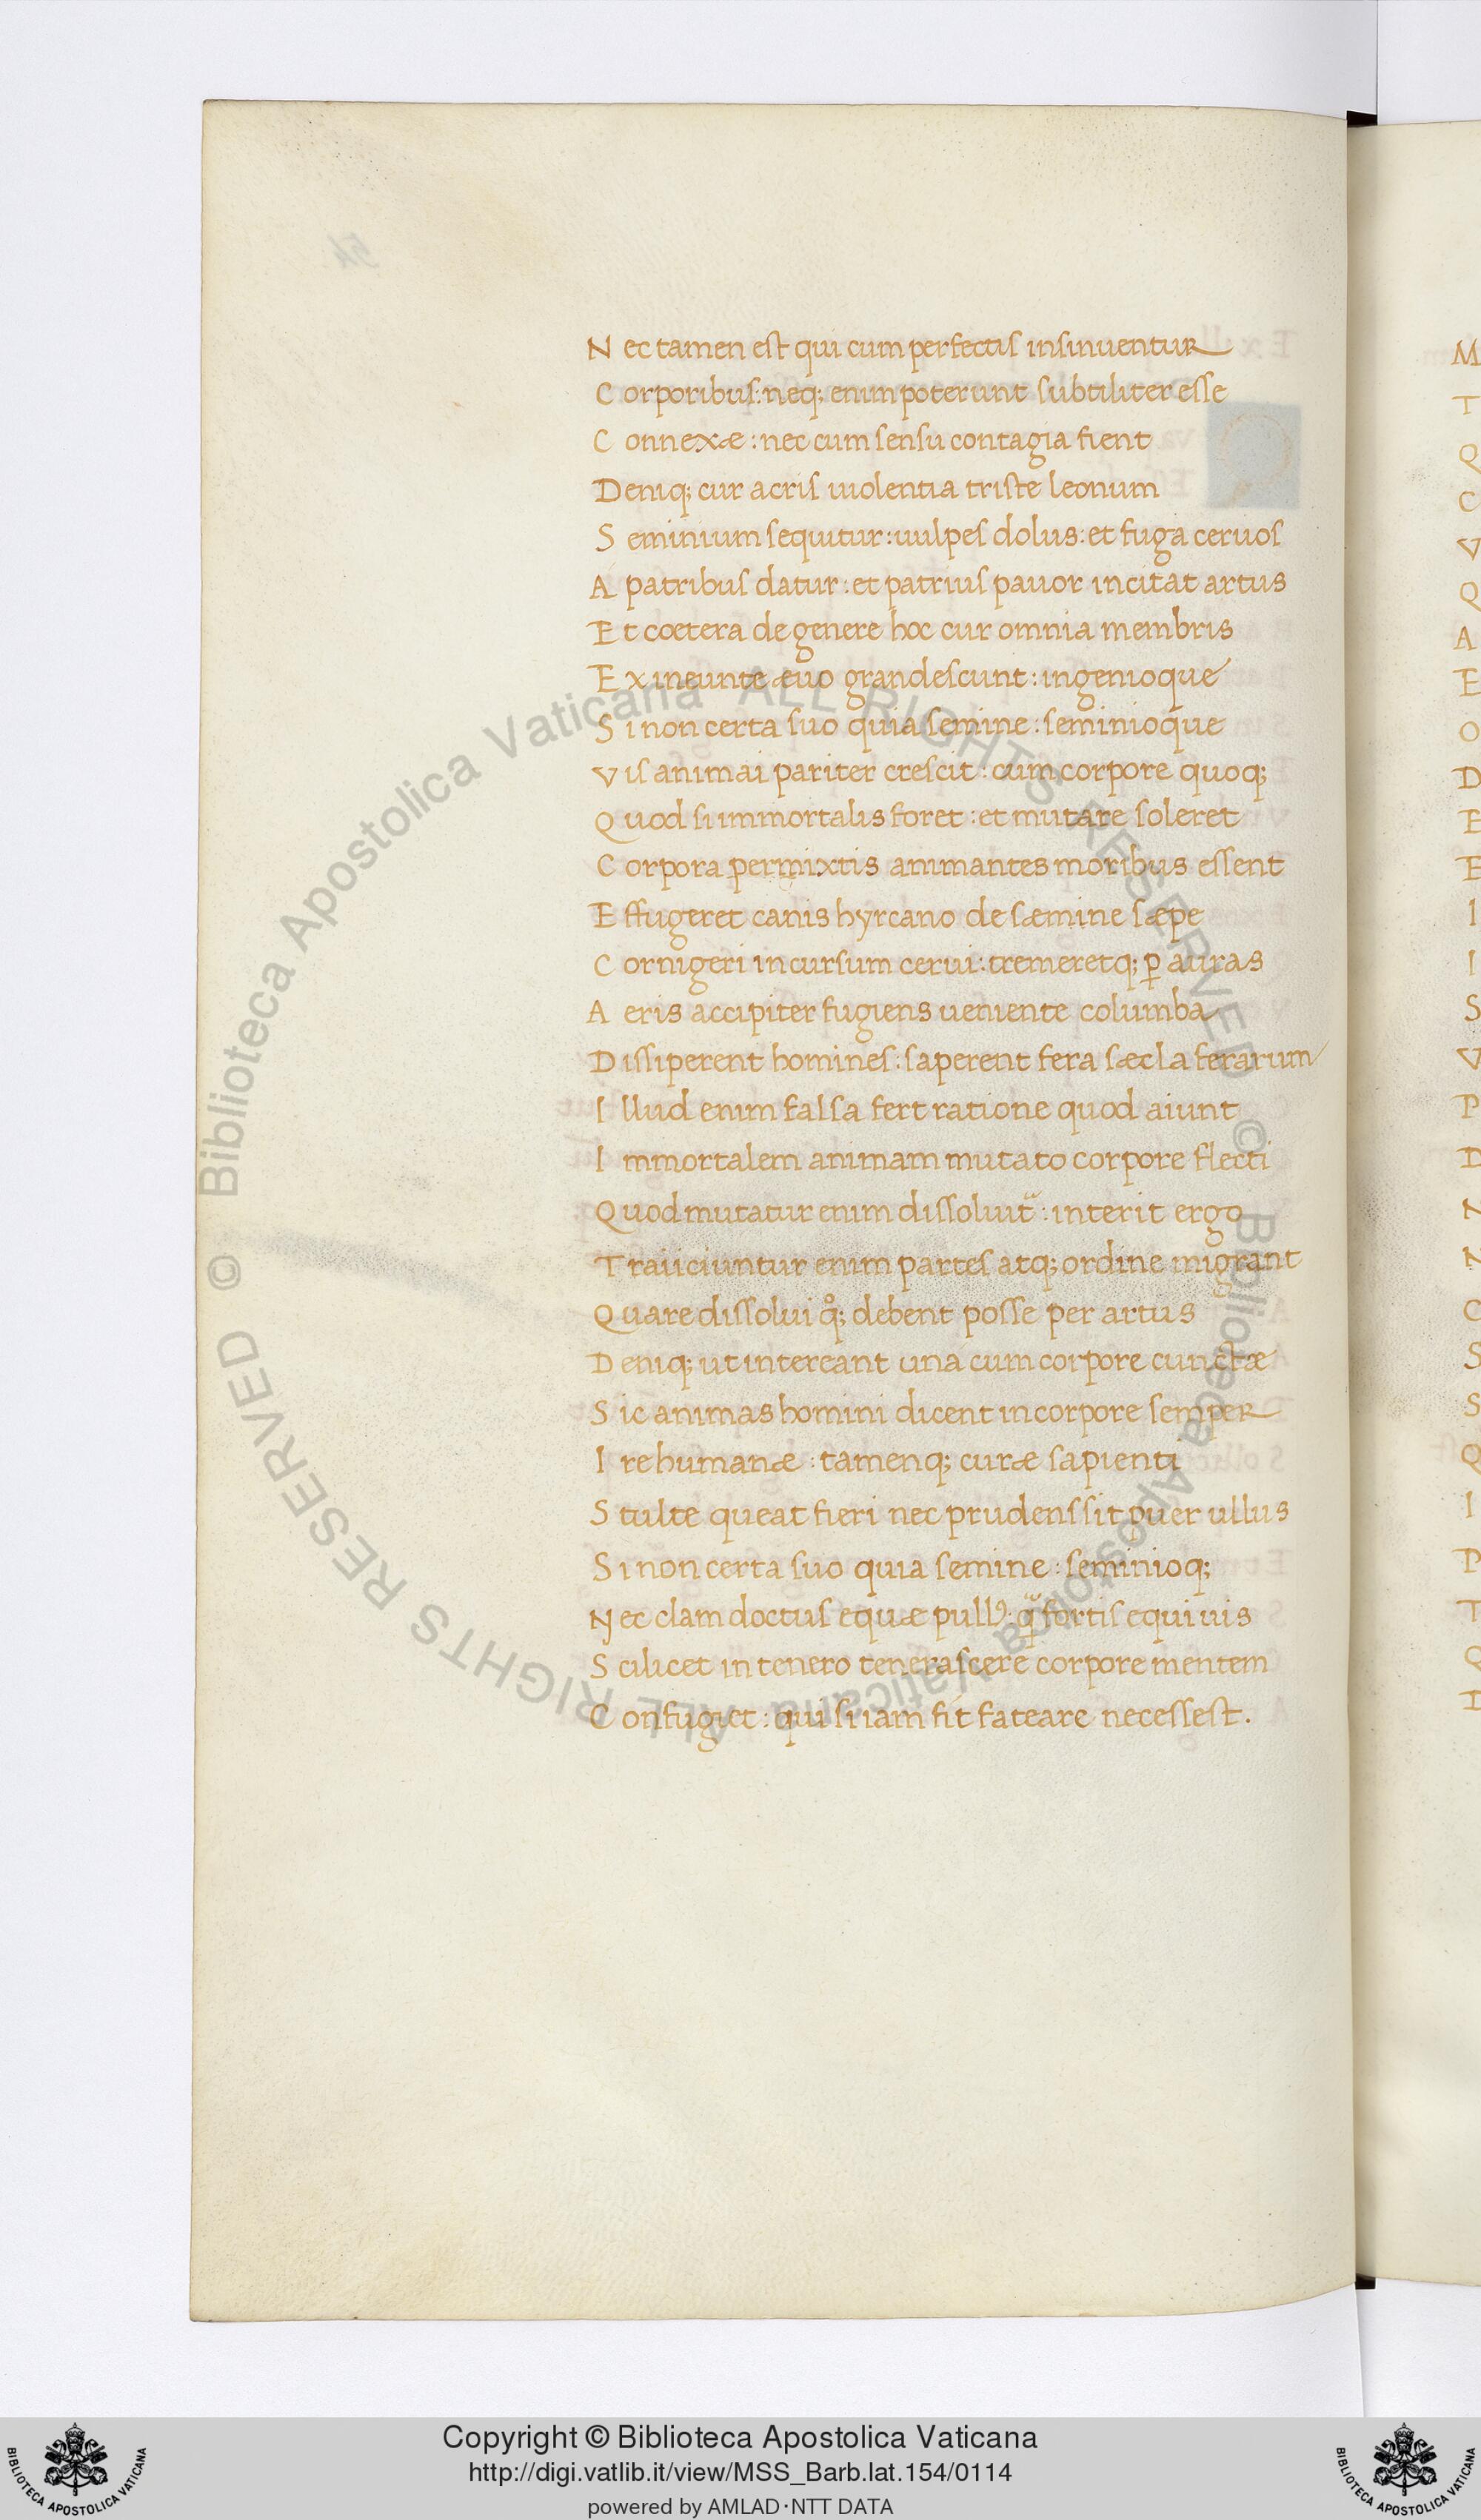 Nec tamen est qui cum perfectis insinuentur
Corporibus: neq; enim poterunt subtiliter esse
Connexæ: nec cum sensu contagia fient
Deniq; cur acris uiolentia triste leonum
Seminium sequitur: uulpes dolus: et fuga ceruos
A patribus datur: et patrius pauor incitat artus
Et coetera de genere hoc cur omnia membris
Ex ineunte æuo grandescunt: ingenioque
Si non certa suo quia semine: seminioque
Vis animai pariter crescit: cum corpore quoq;
Quod si immortalis foret: et mutare soleret
Corpora permixtis animantes moribus essent
Effugeret canis hyrcano de sæmine sæpe
Cornigeri incursum cerui: tremeretq; ꝑ auras
Aeris accipiter fugiens ueniente columba
Dissiperent homines: saperent fera sæcla ferarum
Illud enim falsa fert ratione quod aiunt
Immortalem animam mutato corpore flecti
Quod mutatur enim dissoluit᷑: interit ergo
Traiiciuntur enim partes atq; ordine migrant
Quare dissolui qͦ; debent posse per artus
Deniq; ut intereant una cum corpore cunctæ
Sic animas homini dicent in corpore semper
Ire humanæ: tamenq; curæ sapienti
Stulte queat fieri nec prudens sit puer ullus
Si non certa suo quia semine: seminioq;
Nec clam doctus equæ pullꝰ: qᷓ fortis equi uis
Scilicet in tenero tenerascere corpore mentem
Confugiet: qui si iam fit fateare necessest.
M
T
Q
C
V
Q
A
E
O
D
E
E
I
I
S
V
P
D
N
N
C
S
S
Q
I
P
T
Q
I
© Biblioteca Apostolica Vaticana ALL RIGHTS RESERVED © Biblioteca Apostolica Vaticana ALL RIGHTS RESERVED
Copyright © Biblioteca Apostolica Vaticana
http://digi.vatlib.it/view/MSS_Barb.lat.154/0114
powered by AMLAD·NTT DATA
BIBLIOTECA APOSTOLICA VATICANA
BIBLIOTECA APOSTOLICA VATICANA